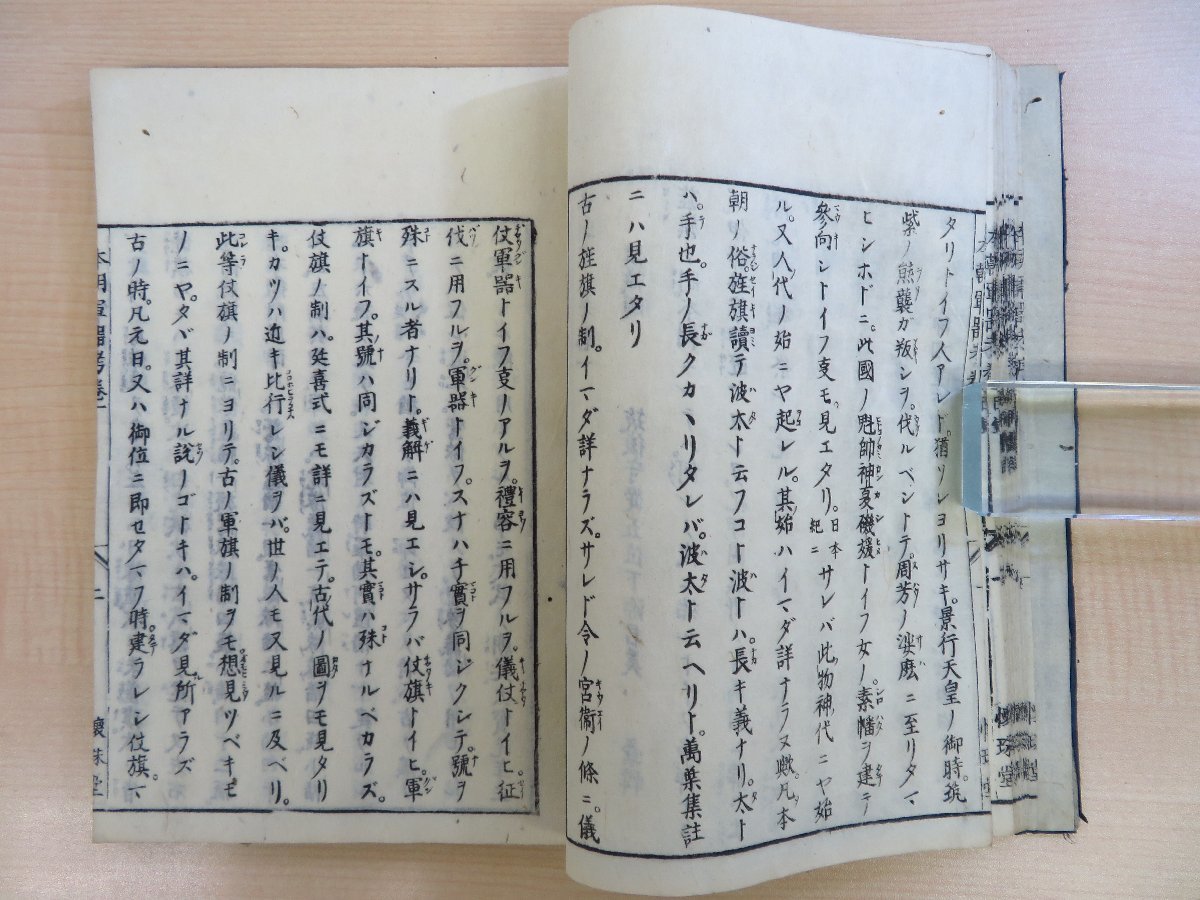 タリトイフ人アレド。猶ソレヨリサキ。景行天皇ノ御時。筑
紫ノ熊襲ガ叛シヲ。伐ルベシトテ。周芳ノ娑麽ニ至リタマ
ヒシホドニ。此國ノ魁帥神夏磯媛トイフ女ノ。素幡ヲ建テ
參向シトイフ叓モ見エタリ。日本紀ニ サレバ此物神代ニヤ始
ル。又人代ノ始ニヤ起レル。其始ハイマダ詳ナラヌ歟。凡本
朝ノ俗。旌旗讀テ波太ト云フコト波トハ。長キ義ナリ。太ト
ハ。手也。手ノ長クカヽリタレバ。波太ト云ヘリト。萬葉集註
ニハ見エタリ
古ノ旌旗ノ制。イマダ詳ナラズ。サレド令ノ宮衞ノ條ニ。儀
仗軍器トイフ叓ノアルヲ。禮容ニ用フルヲ。儀仗トイヒ。征
伐ニ用フルヲ。軍器トイフ。スナハチ實ヲ同ジクシテ。號ヲ
殊ニスル者ナリト。義解ニハ見エシ。サラバ仗旗トイヒ。軍
旗トイフ。其號ハ同ジカラズトモ。其實ハ殊ナルベカラズ。
仗旗ノ制ハ。延喜式ニモ詳ニ見エテ。古代ノ圖ヲモ見タリ
キ。カツハ近キ比行レシ儀ヲバ。世ノ人モ又見ルニ及ベリ。
此等仗旗ノ制ニヨリテ。古ノ軍旗ノ制ヲモ想見ツベキモ
ノニヤ。タヾ其詳ナル説ノゴトキハ。イマダ見所アラズ
古ノ時。凡元日。又ハ御位ニ即セタマフ時建ラレシ仗旗。マ
本朝軍器考卷一
二
懷珠堂